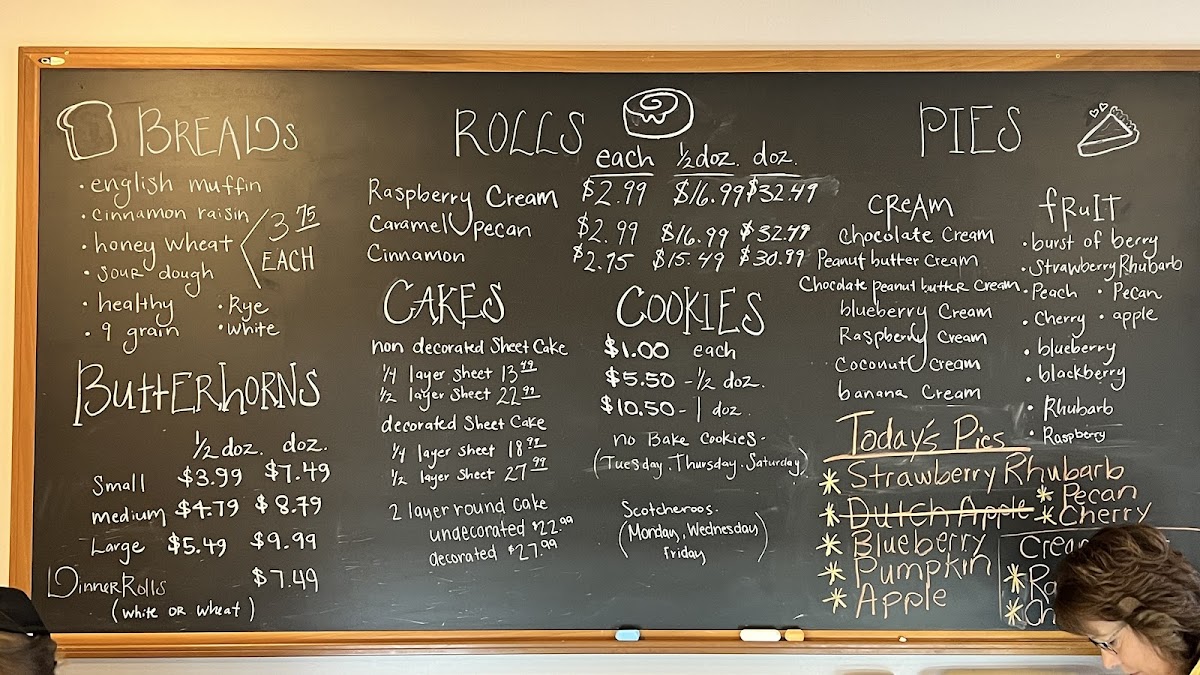 BREADS
• english muffin
• cinnamon raisin
• honey wheat
• sour dough
3 75
EACH
• healthy • Rye
• 9 grain • white
ButtERhoRNS
1/2 doz. doz.
Small $3.99 $7.49
medium $4.79 $8.79
Large $5.49 $9.99
DinneR RolLs $7.49
(white OR wheat)
ROLLS
each 1/2 doz. doz.
Raspberry Cream $2.99 $16.99 $32.49
Caramel pecan $2.99 $16.99 $32.49
Cinnamon $2.75 $15.49 $30.99
CAKES
non decorated Sheet Cake
1/4 layer sheet 13 49
1/2 layer Sheet 22 99
decorated Sheet Cake
1/4 layer sheet 18 99
1/2 layer Sheet 27 99
2 layer round cake
undecorated $22.99
decorated $27.99
COOKIES
$1.00 each
$5.50 - 1/2 doz.
$10.50 - 1 doz.
no Bake Cookies -
(Tuesday. Thursday. Saturday)
Scotcheroos.
(Monday, Wednesday
Friday)
PIES
CReAm
Chocolate Cream
Peanut butter Cream
Chocolate peanut butteR Cream
blueberry Cream
Raspberry Cream
Coconut Cream
banana Cream
fRuIT
• burst of berry
• Strawberry Rhubarb
• Peach • Pecan
• Cherry • apple
• blueberry
• blackberry
• Rhubarb
• Raspberry
Today's Pies
* Strawberry Rhubarb
* Dutch Apple * Pecan
* Blueberry * Cherry
* Pumpkin
* Apple